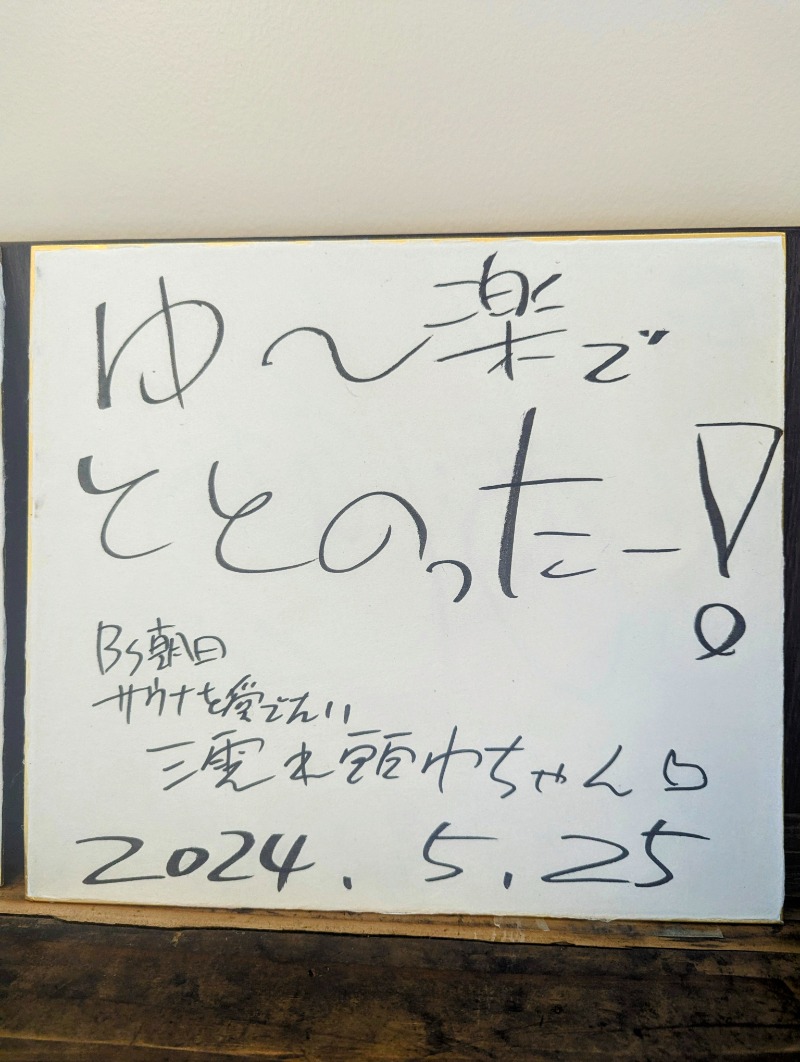 ゆ〜楽で
ととのったー!
BS朝日
サウナを愛でたい
ちゃん
2024.5.25